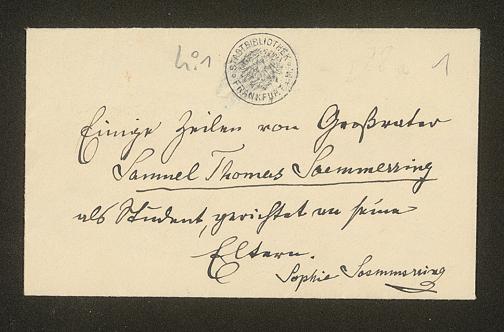 h:1
STADTBIBLIOTHEK
FRANKFURT A.M.
1
Einige Zeilen von Großvater
Samuel Thomas Soemmerring
als Student, gerichtet an seine
Eltern.
Sophie Soemmerring